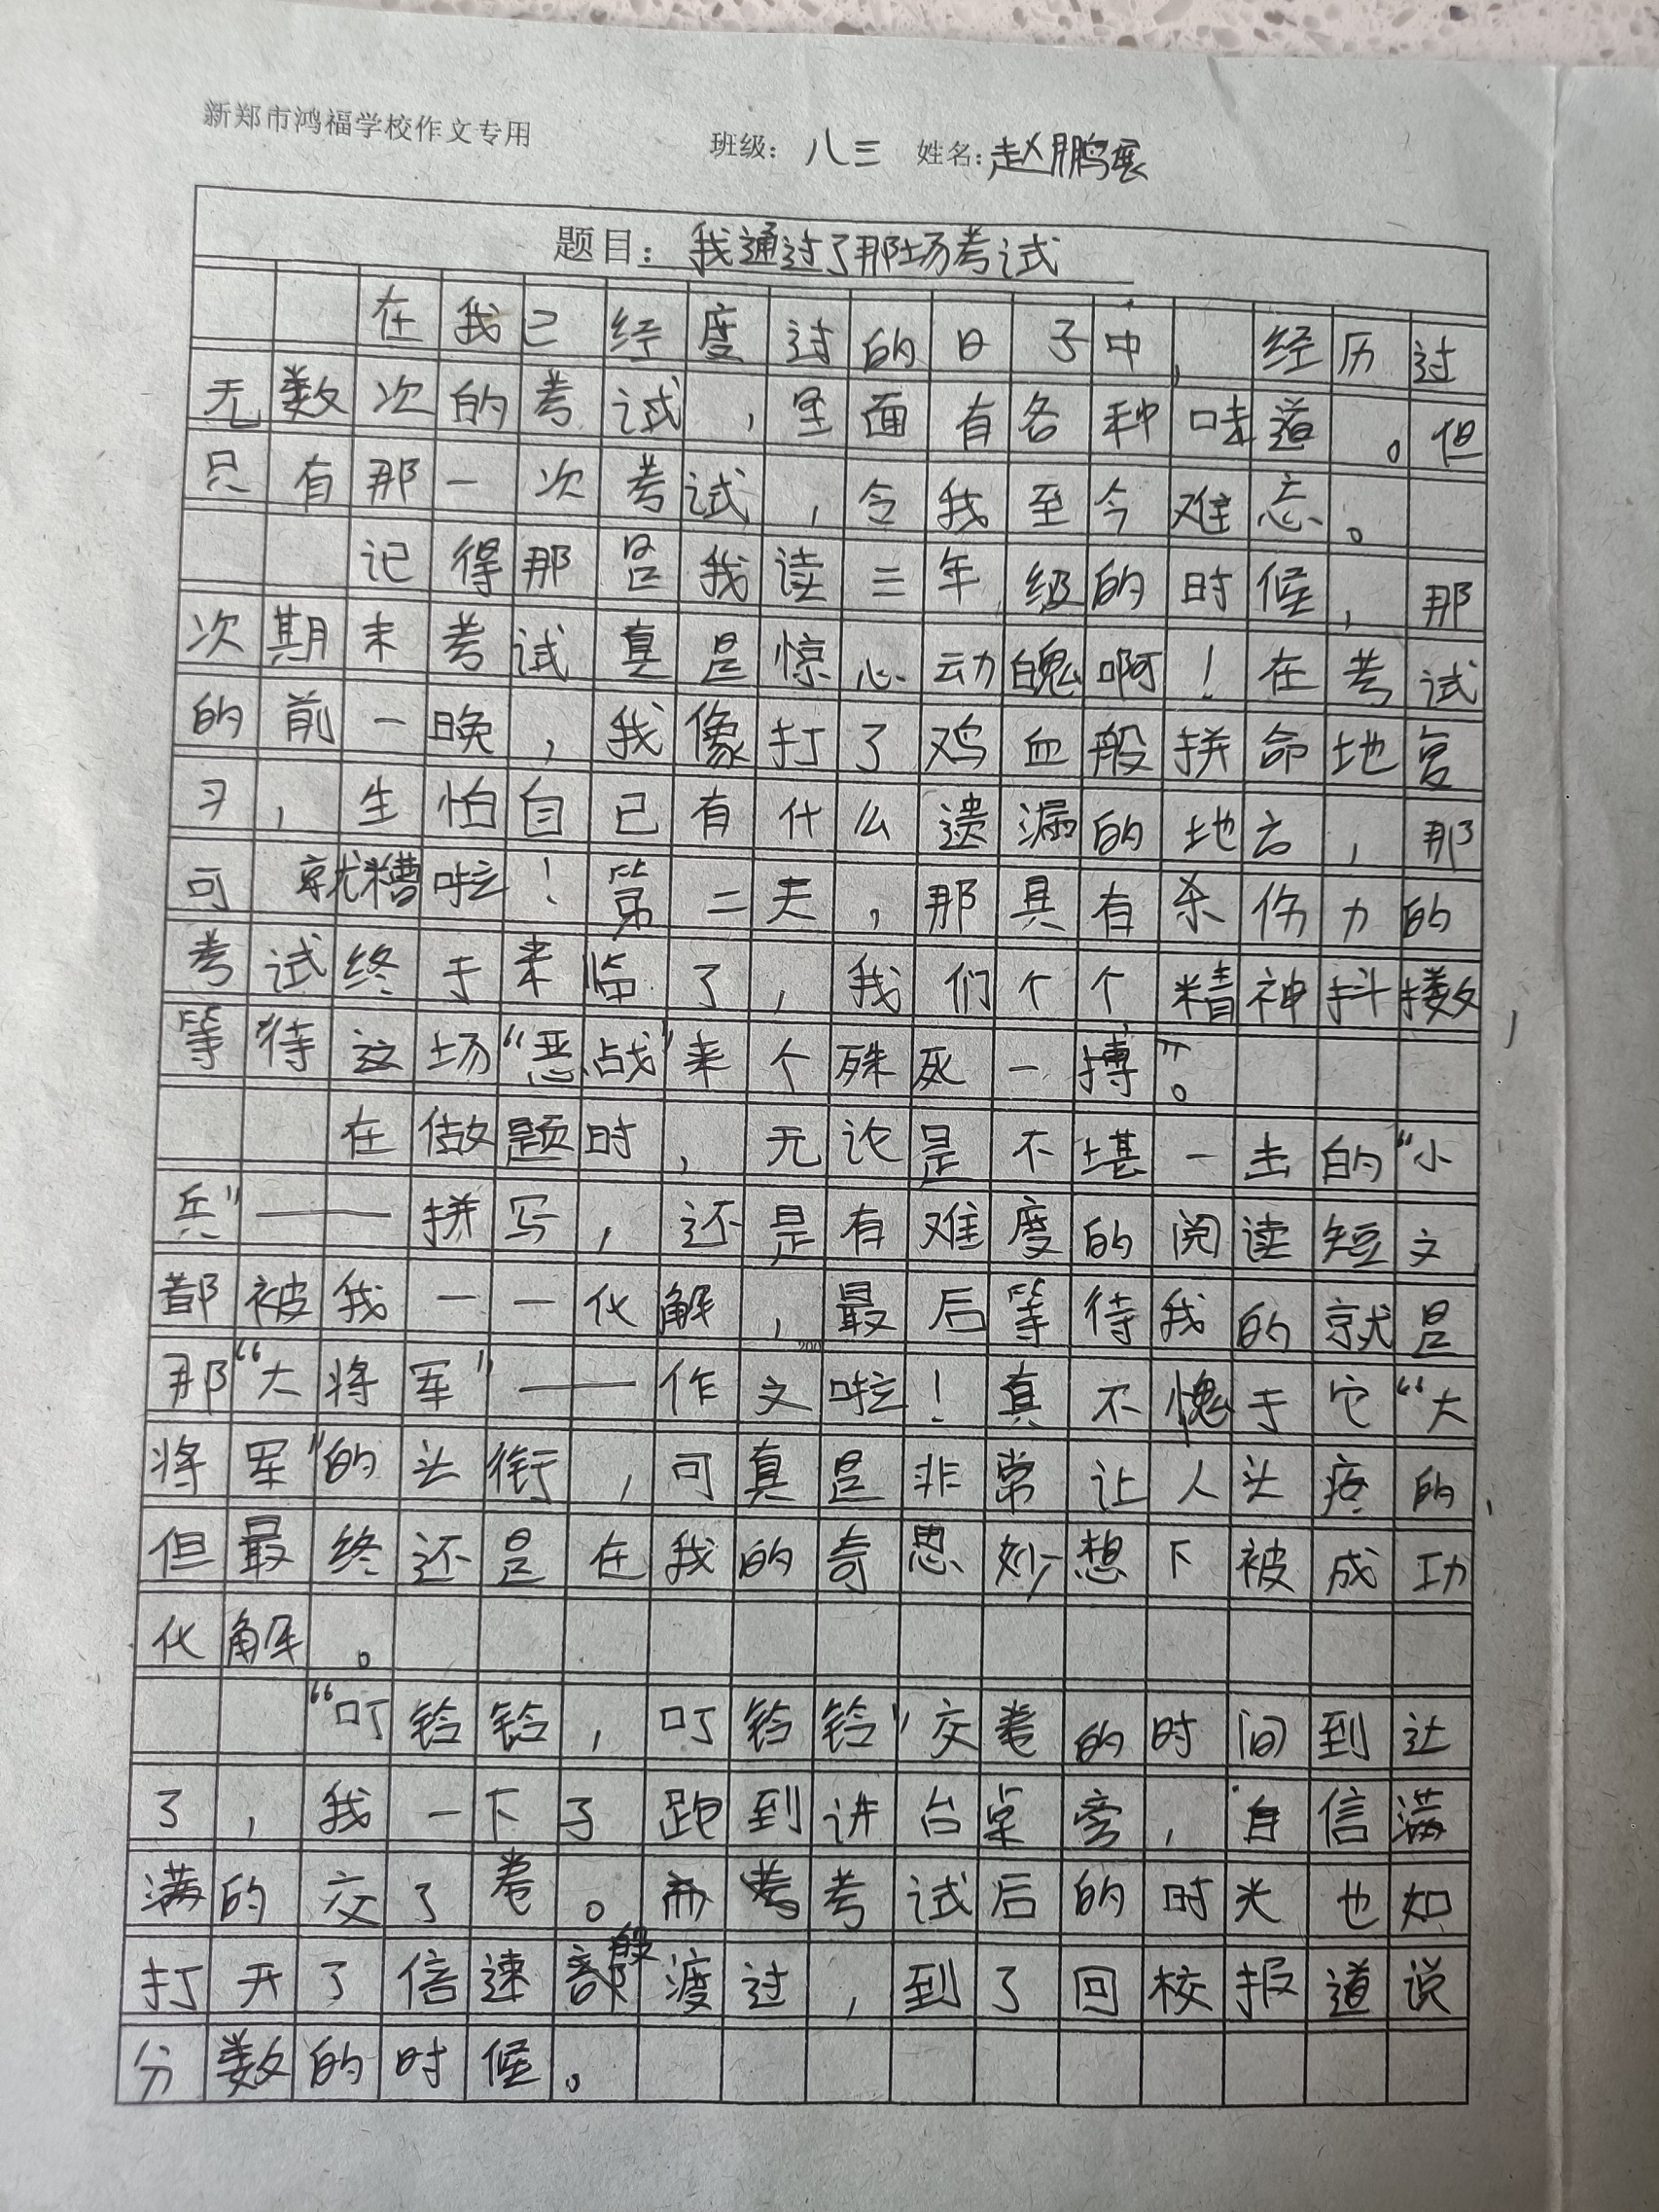 新郑市鸿福学校作文专用 班级：八三 姓名：赵鹏展
题目：我通过了那场考试
在我已经度过的日子中，经历过
无数次的考试，里面有各种味道。但
只有那一次考试，令我至今难忘。
记得那是我读三年级的时候，那
次期末考试真是惊心动魄啊！在考试
的前一晚，我像打了鸡血般拼命地复
习，生怕自己有什么遗漏的地方，那
可就糟啦！第二天，那具有杀伤力的
考试终于来临了，我们个个精神抖擞，
等待这场“恶战”来个殊死一搏”。
在做题时，无论是不堪一击的“小
兵”——拼写，还是有难度的阅读短文
都被我一一化解，最后等待我的就是
200
那“大将军”——作文啦！真不愧于它“大
将军”的头衔，可真是非常让人头疼的，
但最终还是在我的奇思妙想下被成功
化解。
“叮铃铃，叮铃铃”交卷的时间到达
了，我一下子跑到讲台桌旁，自信满
满的交了卷。而考试后的时光也如
打开了倍速般渡过，到了回校报道说
分数的时候。